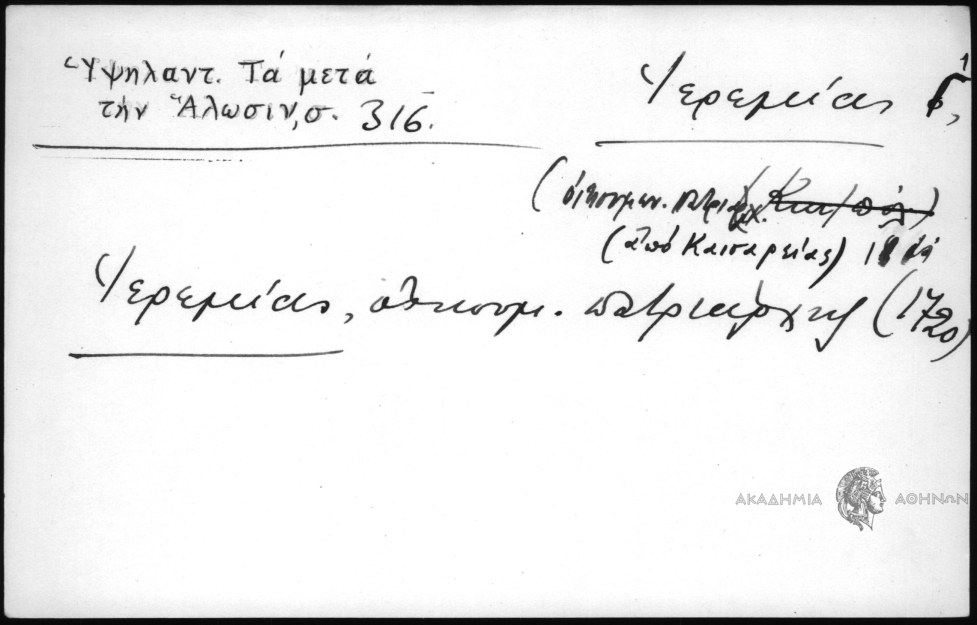 Ὑψηλαντ. Τά μετά
τήν Ἅλωσιν, σ. 316.
Ἱερεμίας Γ',
(οἰκουμεν. πατριάρχ. Κων/πόλ)
(ἀπό Καισαρείας)
Ἱερεμίας, οἰκουμ. πατριάρχης (1720)
ΑΚΑΔΗΜΙΑ ΑΘΗΝΩΝ